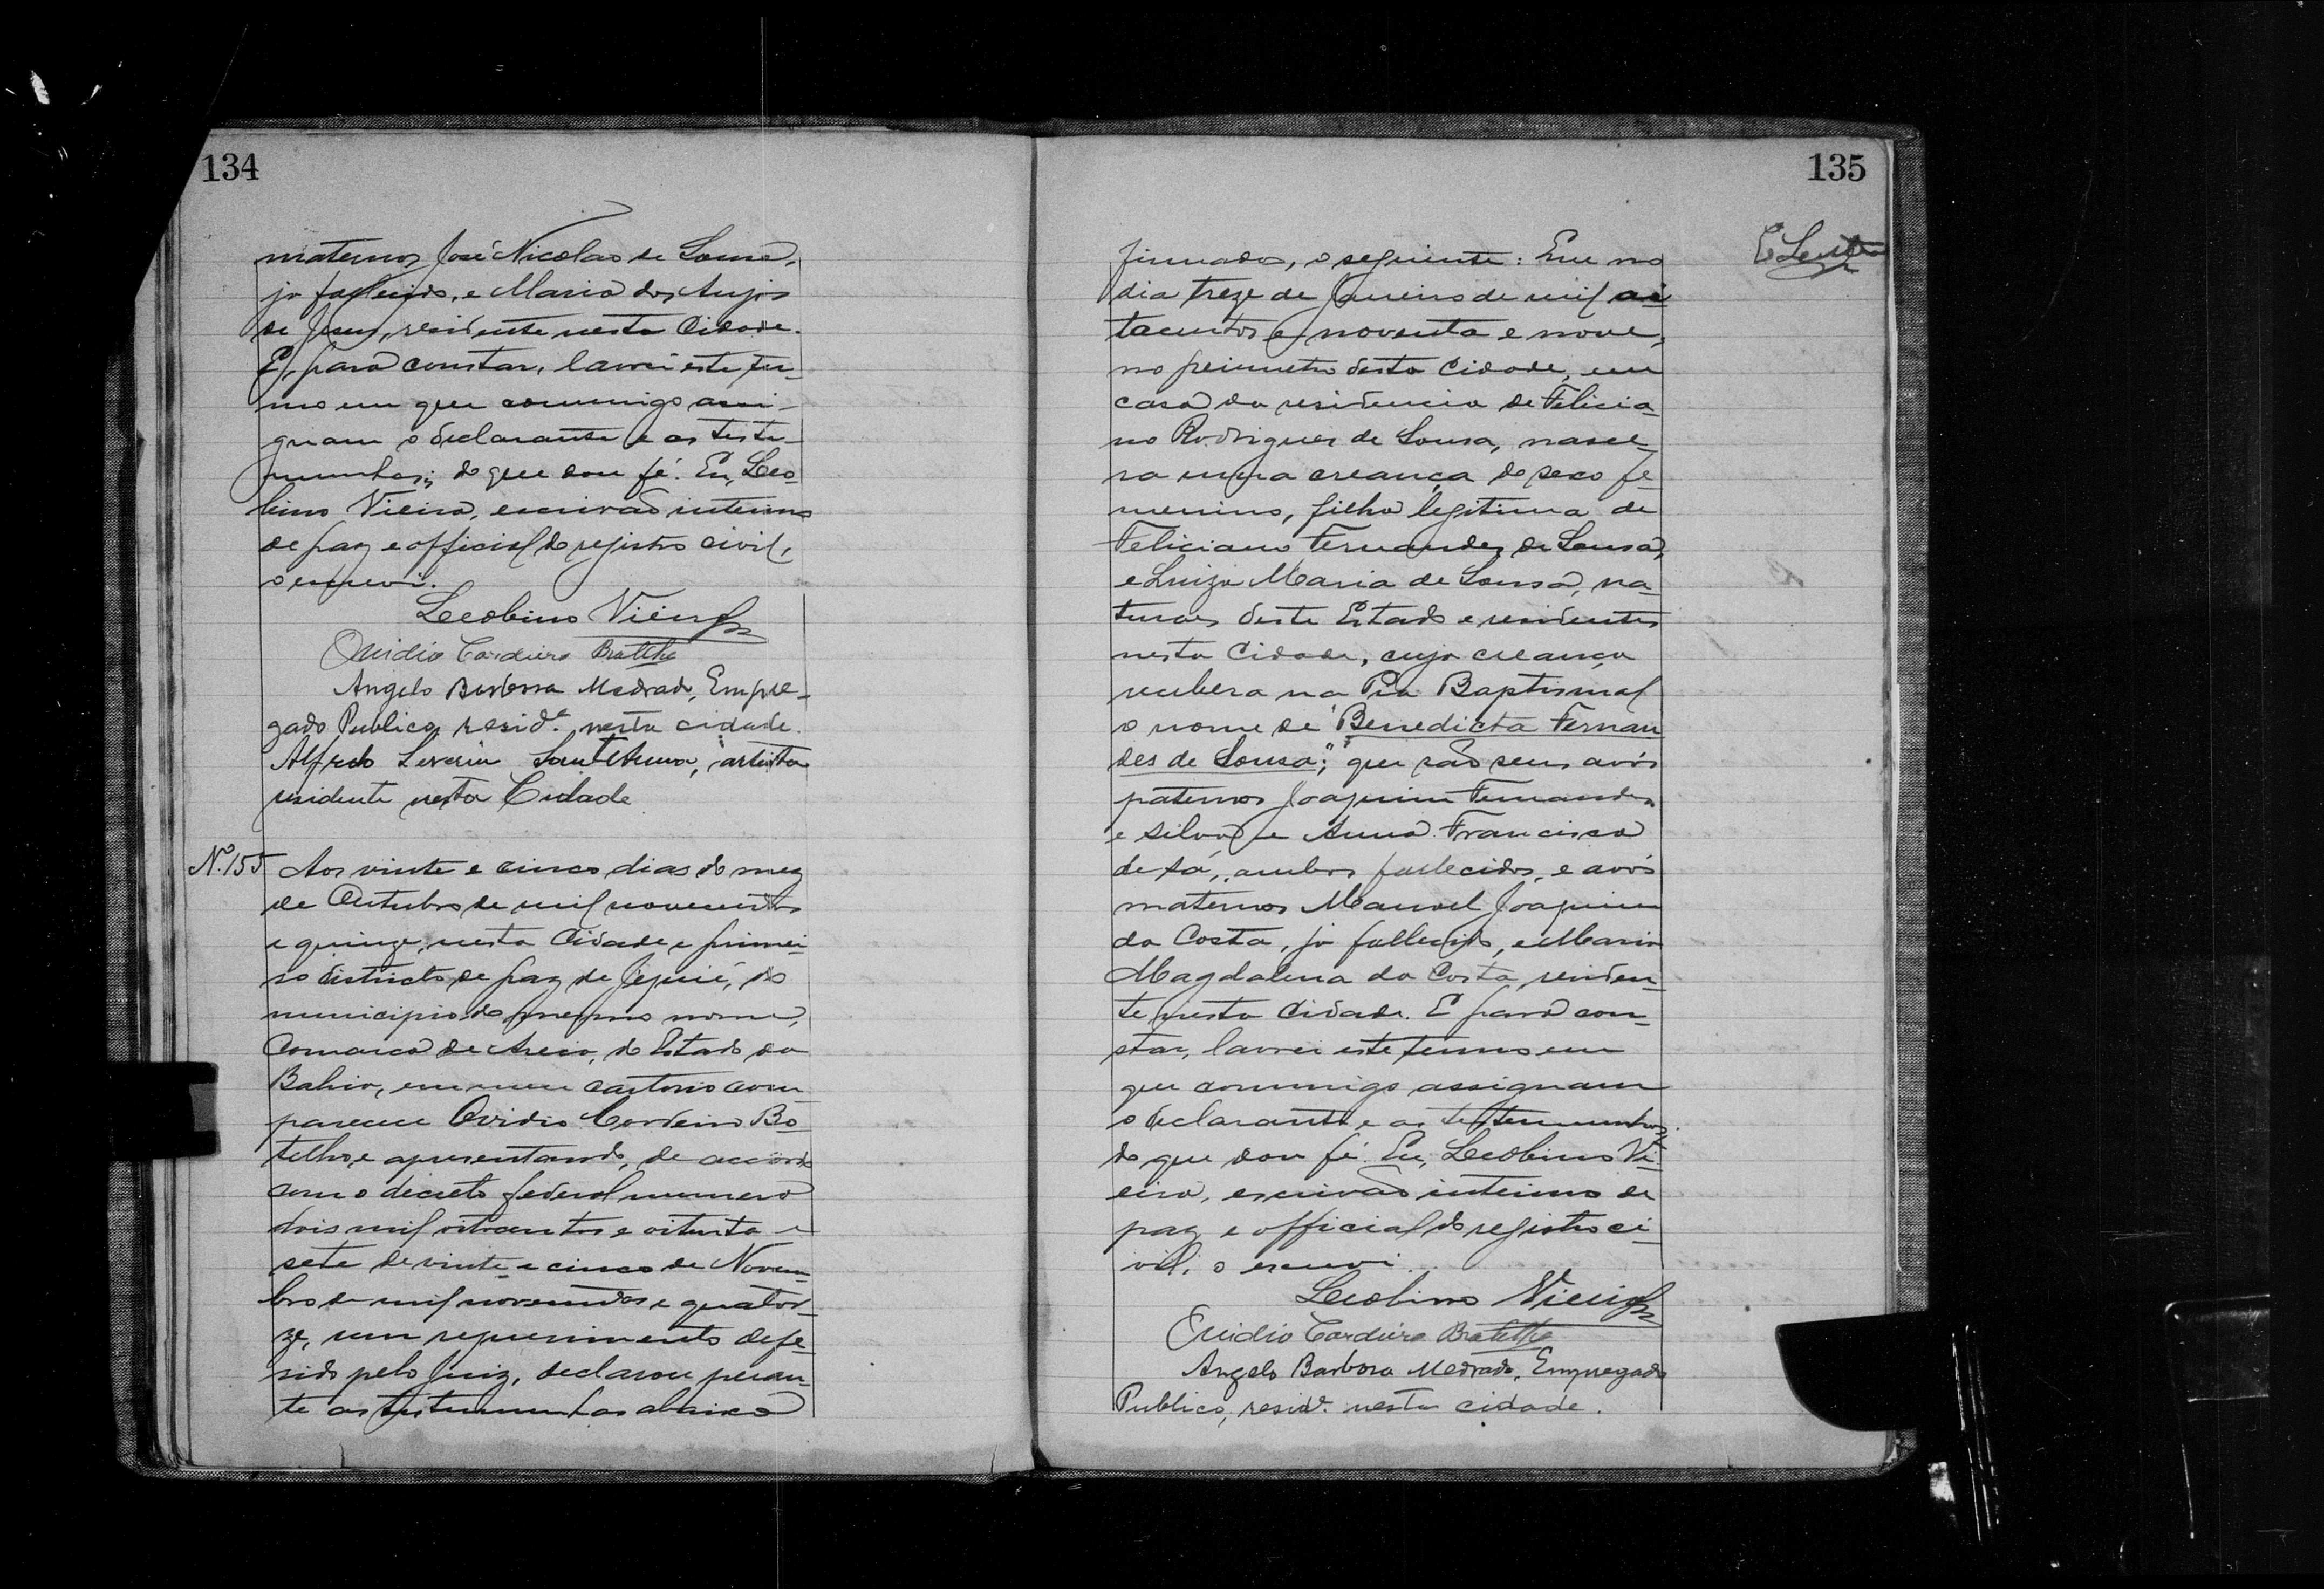 134
maternos José Nicolao de Sousa,
ja fallecido, e Maria dos Anjos
de Jesus, residente nesta Cidade.
E, para constar, lavrei este ter-
mo em que commigo assi-
gnam o declarante e as teste-
munhas; do que dou fé. Eu, Leo-
bino Vieira, escrivão interino
de paz e official do registro civil,
o escrevi.
Leobino Vieira
Ovidio Cordeiro Botelho
Angelo Barbosa Medrado, Empre-
gado Publico, resid.e nesta cidade.
Alfredo Severin Sant'Anna, artista
residente nesta Cidade
Nº 155 Aos vinte e cinco dias do mez
de Outubro de mil novecentos
e quinze, nesta Cidade e primei-
ro districto de paz de Jequié, do
municipio do mesmo nome,
Comarca de Areia, do Estado da
Bahia, em meu cartorio com-
pareceu Ovidio Cordeiro Bo-
telho, e apresentando, de accordo
com o decreto federal numero
dois mil oitocentos e oitenta e
sete de vinte e cinco de Novem-
bro de mil novecentos e quator-
ze, um requerimento defe-
rido pelo Juiz, declarou peran-
te as testemunhas abaixo
135
firmados, o seguinte: Que no
dia treze de Janeiro de mil oi-
tocentos e noventa e nove,
no perimetro desta Cidade, em
casa da residencia de Felicia-
no Rodrigues de Sousa, nasce-
ra uma creança do sexo fe-
menino, filha legitima de
Feliciano Fernandes de Sousa,
e Luiza Maria de Sousa, na-
turaes deste Estado e residentes
nesta Cidade, cuja creança
recebera na Pia Baptismal
o nome de "Benedicta Fernan
des de Sousa;" que são seus avós
paternos Joaquim Fernandes
e Silva e Anna Francisca
de Sá, ambos fallecidos, e avós
maternos Manoel Joaquim
da Costa, já fallecido, e Maria
Magdalena da Costa, residen-
te nesta Cidade. E para con-
star, lavrei este termo em
que commigo assignam
o declarante e as testemunhas,
do que dou fé. Eu, Leobino Vi-
eira, escrivão interino de
paz e official do registro ci-
vil, o escrevi.
Leobino Vieira
Ovidio Cordeiro Botelho
Angelo Barbosa Medrado, Empregado
Publico, resid.e nesta cidade.